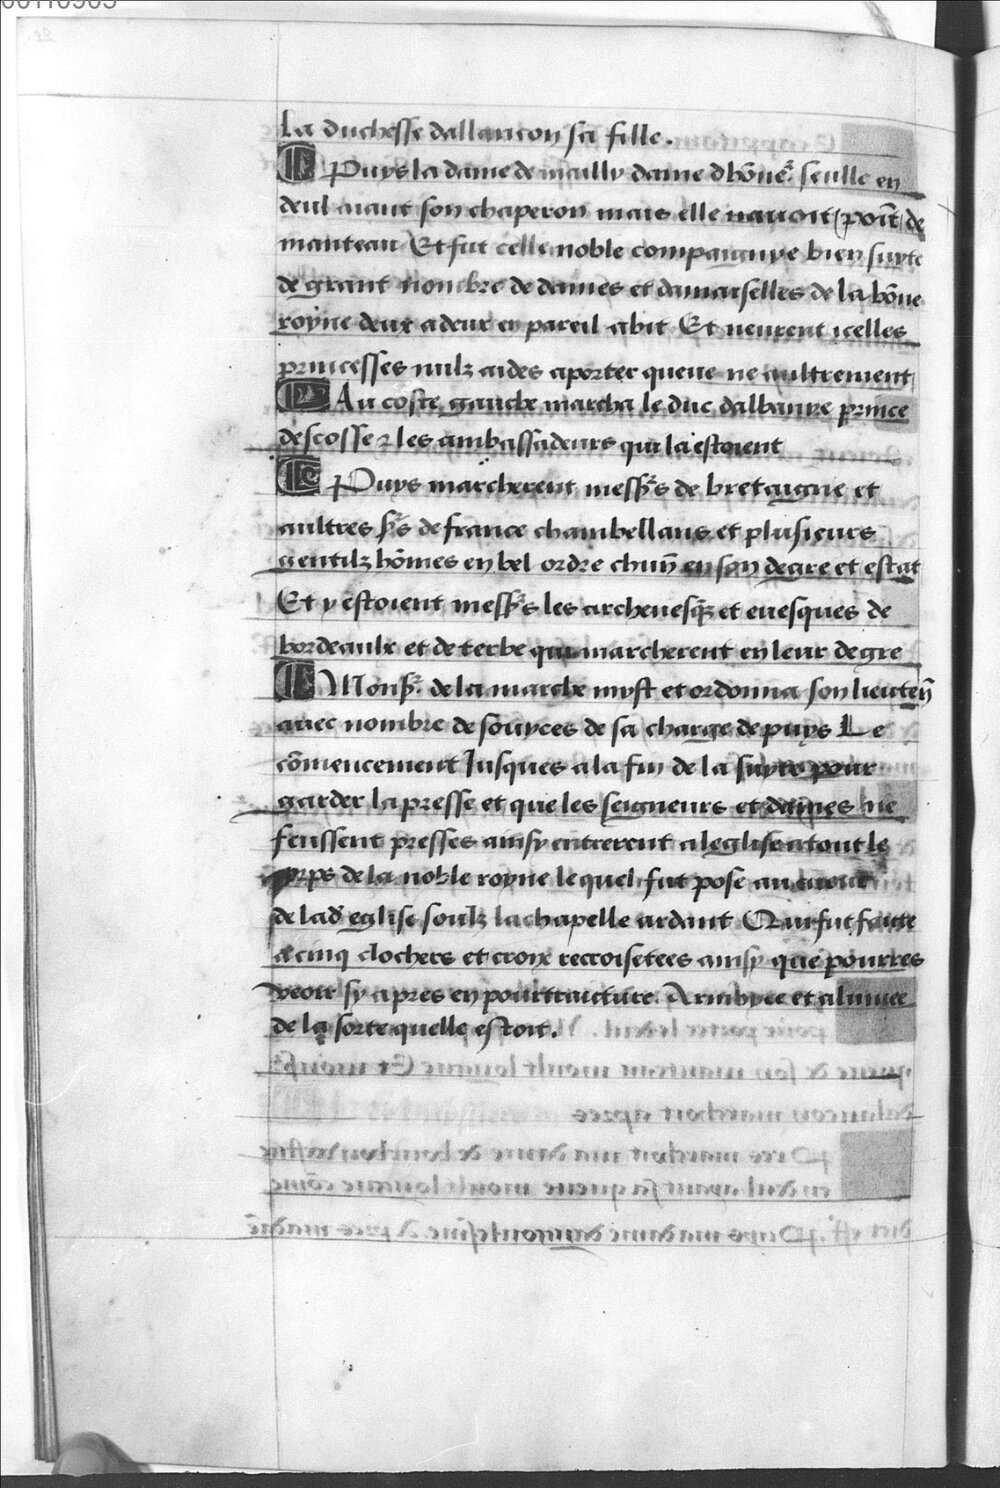 La duchesse dallancon sa fille.
Puys la dame de mailly dame dhōne͛. seulle en
deul aiant son chaperon mais elle navoit point de
manteau Et fut celle noble compaignye bien suyte
de grant nombre de dames et damaiselles de la bōne
royne deux a deux en pareil abit Et neurent icelles
princesses nulz aides aporter queue ne aultrement
Au coste gauche marcha le duc dalbanye prince
descosse ⁊ les ambassadeurs qui la estoient
Puys marcherent mess͛s de bretaigne et
aultres s͛s de france chambellans et plusieurs
gentilz hōmes en bel ordre chun̄ en son degre et estat
Et y estoient mess͛s les archevesq̄z et evesques de
bordeaulx et de terbe qui marcherent en leur degre
Mons͛. de la marche myst et ordonna son lieuten̄
avec nombre de souyces de sa charge de puys Le
cōmencement Jusques a la fin de la suyte pour
garder la presse et que les seigneurs et dames ne
feussent presses ainsy entrerent a leglise atout le
corps de la noble royne lequel fut pose au cueur
de lad̄ eglise soulz la chapelle ardant Qui fut faicte
a cinq clochers et croix recroisetees ainsy que pourres
veoir sy apres en pourtraicture. Armoyee et alumee
de la sorte quelle estoit.